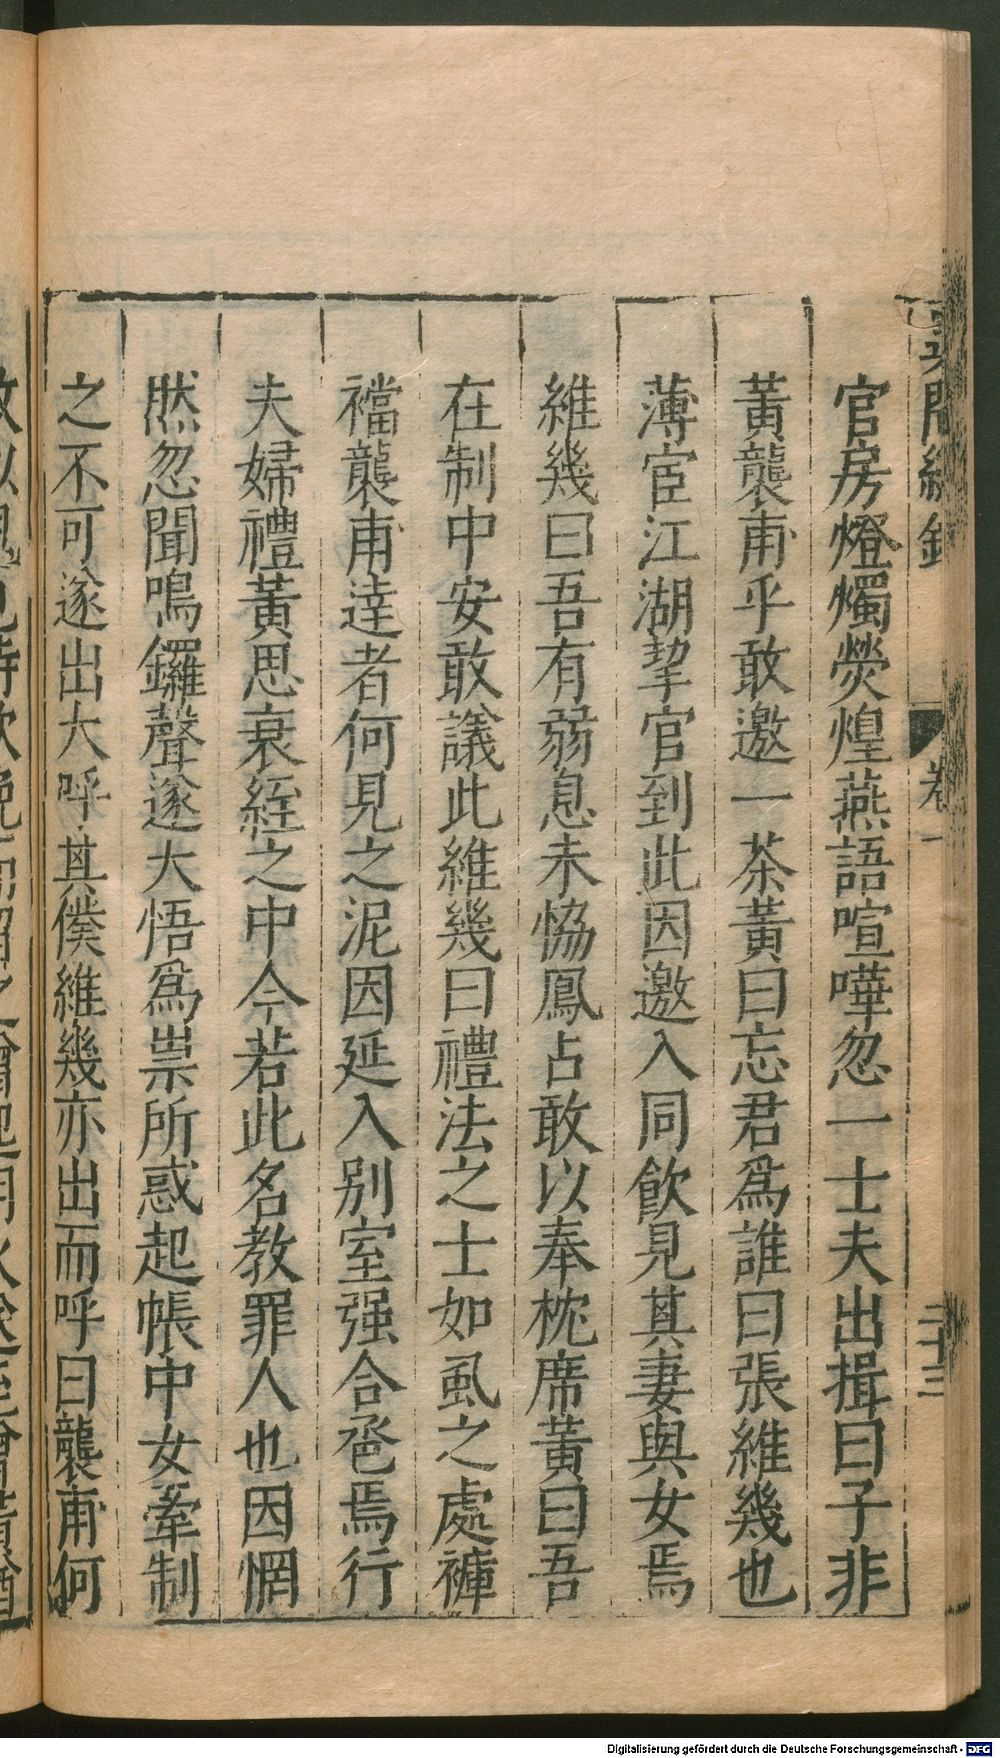 官房燈燭熒煌燕語喧嘩忽一士夫出揖曰子非
黃襲甫乎敢邀一茶黃曰忘君爲誰曰張維幾也
薄宦江湖挈官到此因邀入同飲見其妻與女焉
維幾曰吾有弱息未恊鳳占敢以奉枕席黃曰吾
在制中安敢議此維幾曰禮法之士如虱之處褲
襠襲甫達者何見之泥因延入別室强合卺焉行
夫婦禮黃思衰絰之中今若此名教罪人也因惘
然忽聞鳴鑼聲遂大悟爲祟所惑起帳中女牽制
之不可遂出大呼其僕維幾亦出而呼曰襲甫何
卷一
二十三
Digitalisierung gefördert durch die Deutsche Forschungsgemeinschaft - DFG